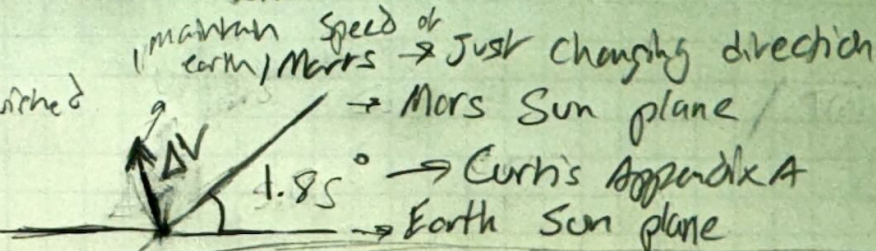 maintain speed of
earth/Mars → Just changing direction
→ Mars Sun plane
ΔV
1.85° → Curtis Appendix A
→ Earth Sun plane